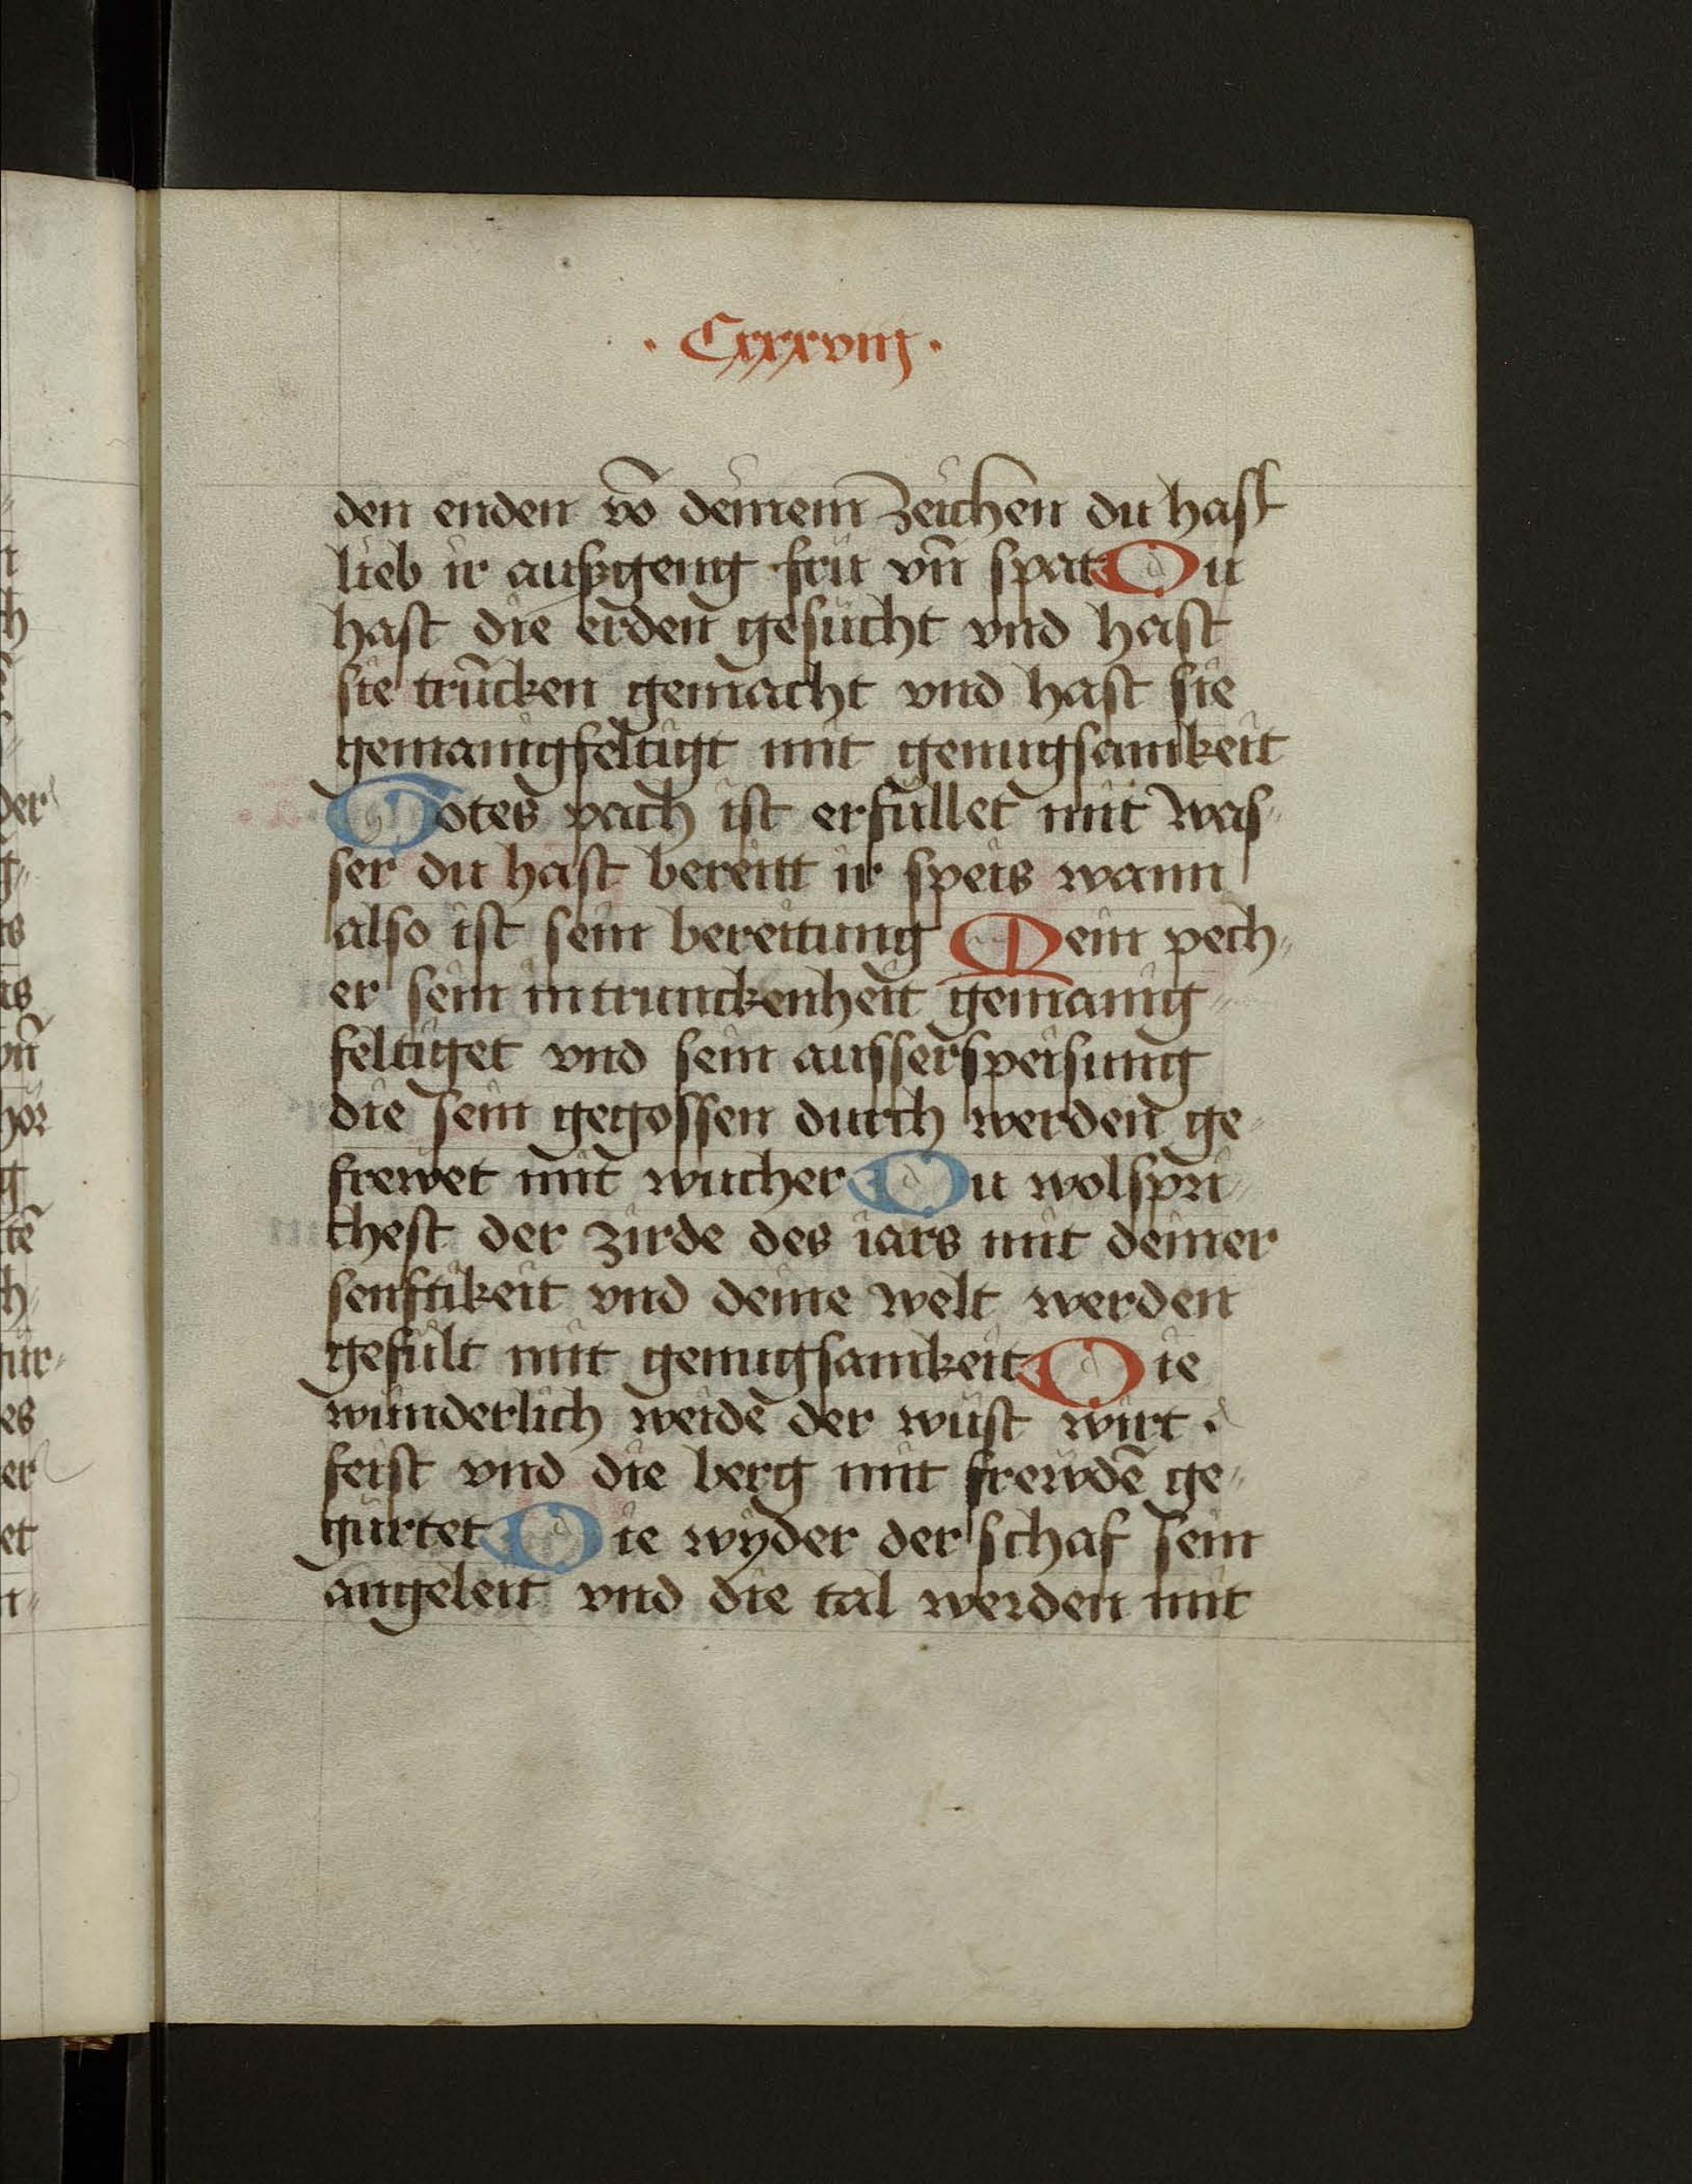 · Cxxxviij ·
den enden vō deinem zeichen du hast
lieb ir auſzgeng frü vñ spat Du
hast die erden gesucht vnd hast
sie trūcken gemacht vnd hast sie
gemanigfeltigt mit genugsamkeit
Gotes pach ist erfüllet mit was-
ser du hast bereitt ir speis wann
also ist sein bereitung Mein pech-
er sein intrunckenheit gemanig-
feltiget vnd sein ausserspeisung
die sein gegossen durch werden ge-
frewet mit wucher Du wolspri-
chest der zirde des iars mit deiner
senftikeit vnd deine welt werden
gefült mit genugsamkeit Die
wunderlich weide der wüst wirt .
feist vnd die berg mit frewdē ge-
gürtet Die wyder der schaf sein
angeleit vnd die tal werden mit